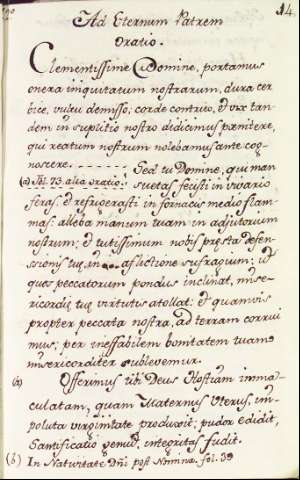 14.
Ad Eternum Patrem
Oratio.
Clementissime Domine, portamus
onera iniquitatum nostrarum, dura cer
bice, vultu demisso; corde contrito, et vix tan
dem in suplitio nostro didicimus pœnitere,
qui reatum nostrum nolebamus ante cog-
noscere. - - - - - - - Sed tu Domine, qui man
(a) fol. 73. alia oratio. suetas fecisti in vivario
feras: et refrigerasti in fornacis medio flam
mas: alleba manum tuam in adjutorium
nostrum; et tutissimum nobis pręsta defen-
ssionis tuę, in aflictione sufragium; ut
quos peccatorum pondus inclinat, mise-
ricordię tuę virtutis atollat: et quamvis
propter peccata nostra, ad terram corrui
mus; per ineffabilem bonitatem tuam
misericorditer sublevemur.
(a) Offerimus tibi Deus Hostiam imma-
culatam, quam Maternus Uterus, im-
poluta virginitate produxit; pudor edidit,
Santificatio genuit, integritas fudit.
(b) In Nativitate Dñi post Nomina. fol. 39